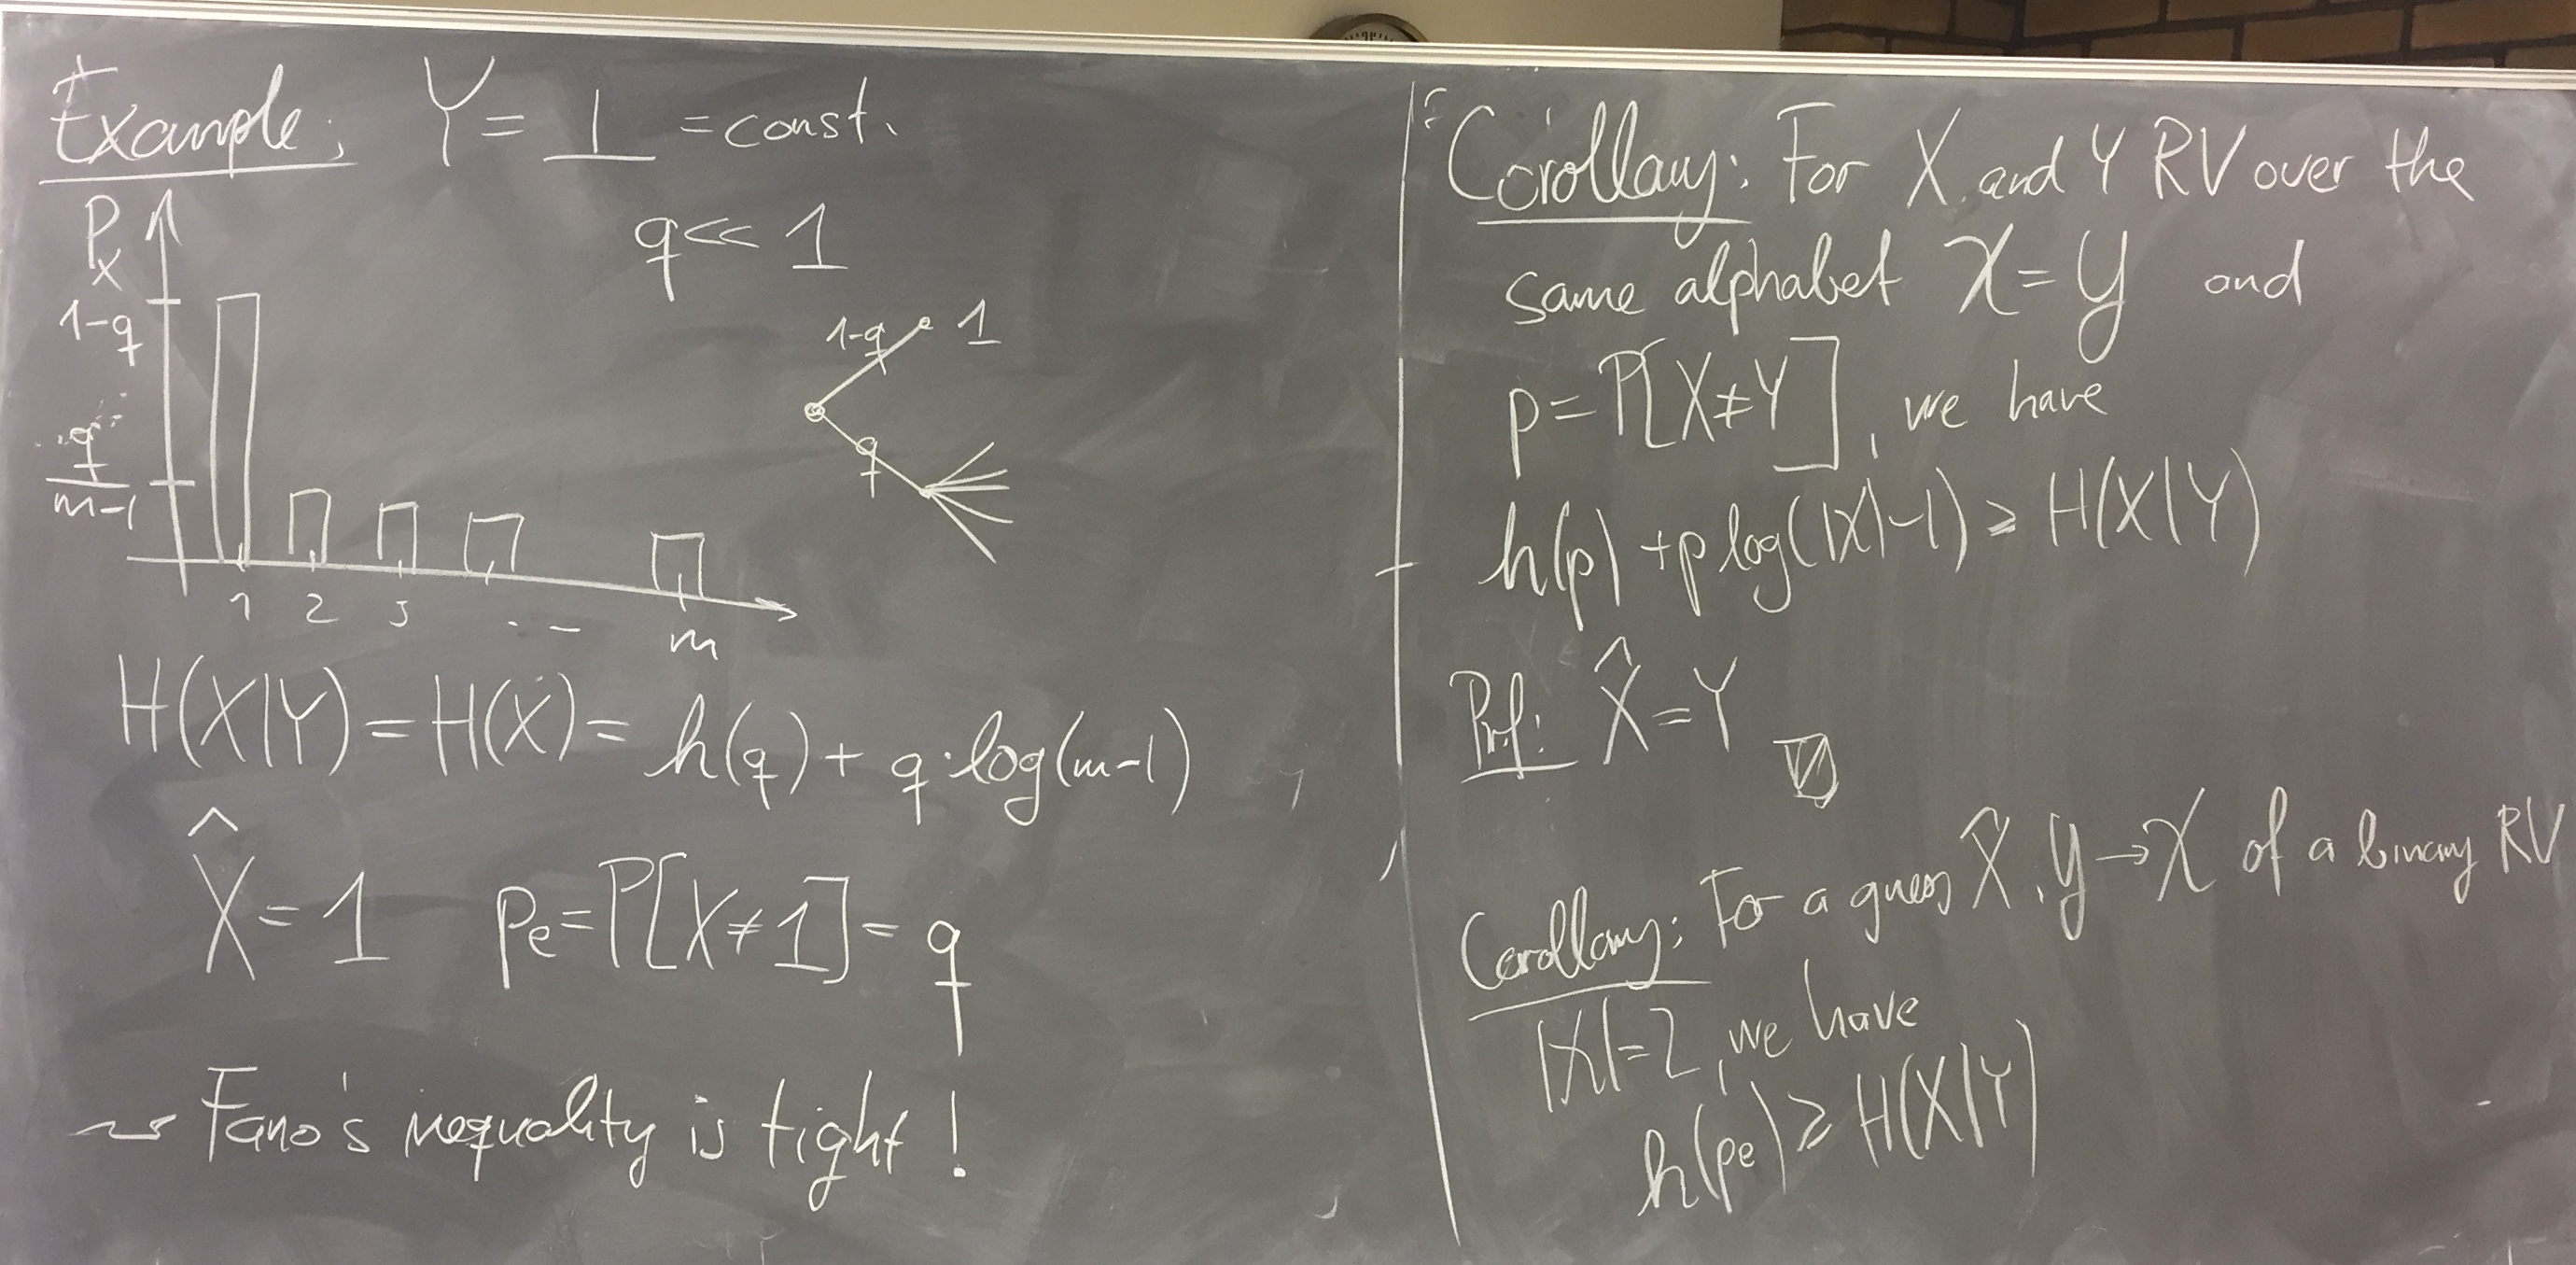 Example: Y = ⊥ = const.
P_X
q << 1
1-q
q/(m-1)
1 2 3 . - m
1-q 1
q
H(X|Y) = H(X) = h(q) + q·log(m-1)
X̂ = 1 pe = P[X ≠ 1] = q
⇝ Fano's inequality is tight!
Corollary: For X and Y RV over the
same alphabet 𝒳 = 𝒴 and
p = P[X ≠ Y], we have
h(p) + p log(|𝒳|-1) ≥ H(X|Y)
Prf: X̂ = Y
Corollary: For a guess X̂: 𝒴 → 𝒳 of a binary RV
|𝒳| = 2, we have
h(pe) ≥ H(X|Y)